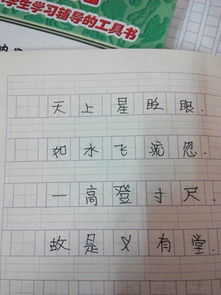 生学习辅导的工具书
天上星眨眼.
如水飞流忽.
一高登寸尺.
故是义有堂.